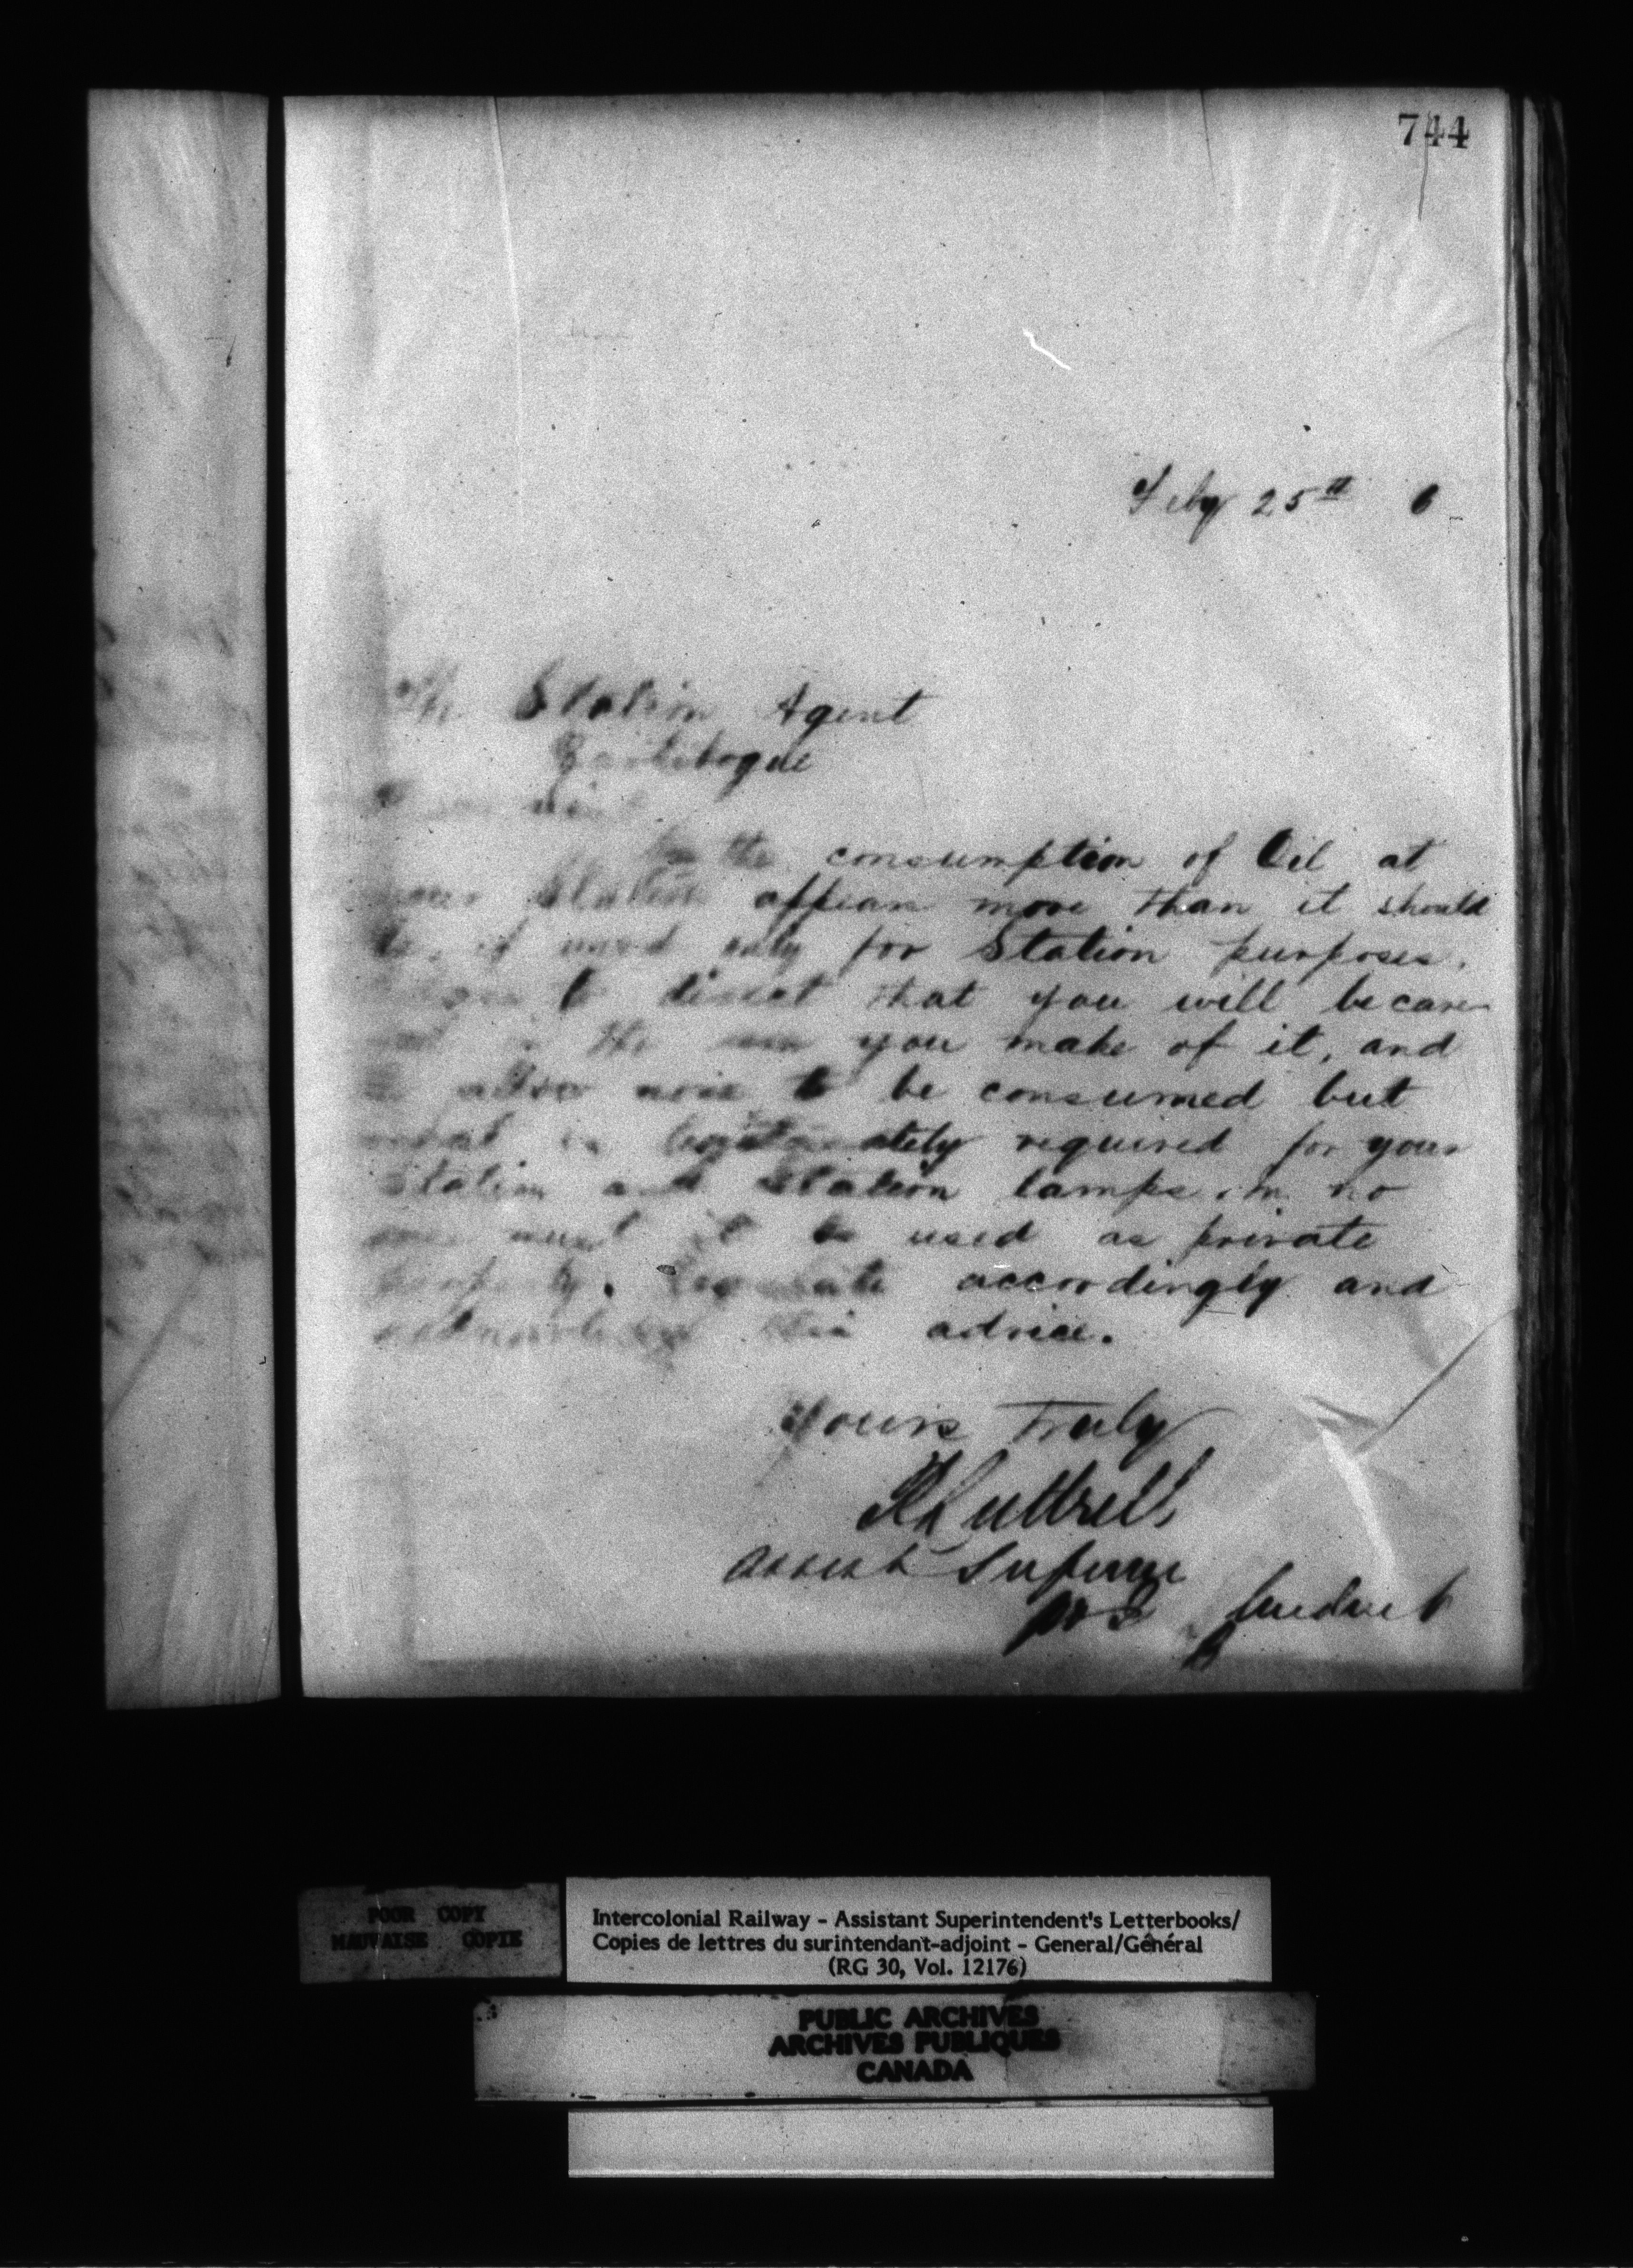 744
Feby 25th 6
Station Agent
Bartibogue
Sir
the consumption of Oil at
your Station appears more than it should
be, if used only for Station purposes.
to direct that you will be care
in the use you make of it, and
to allow none to be consumed but
what is legitimately required for your
Station and Station lamps, in no
case must it be used as private
property. Regulate accordingly and
acknowledge this advice.
Yours Truly
Luttrell
Assist Superin
tendent
POOR COPY
MAUVAISE COPIE
Intercolonial Railway - Assistant Superintendent's Letterbooks/
Copies de lettres du surintendant-adjoint - General/Général
(RG 30, Vol. 12176)
PUBLIC ARCHIVES
ARCHIVES PUBLIQUES
CANADA